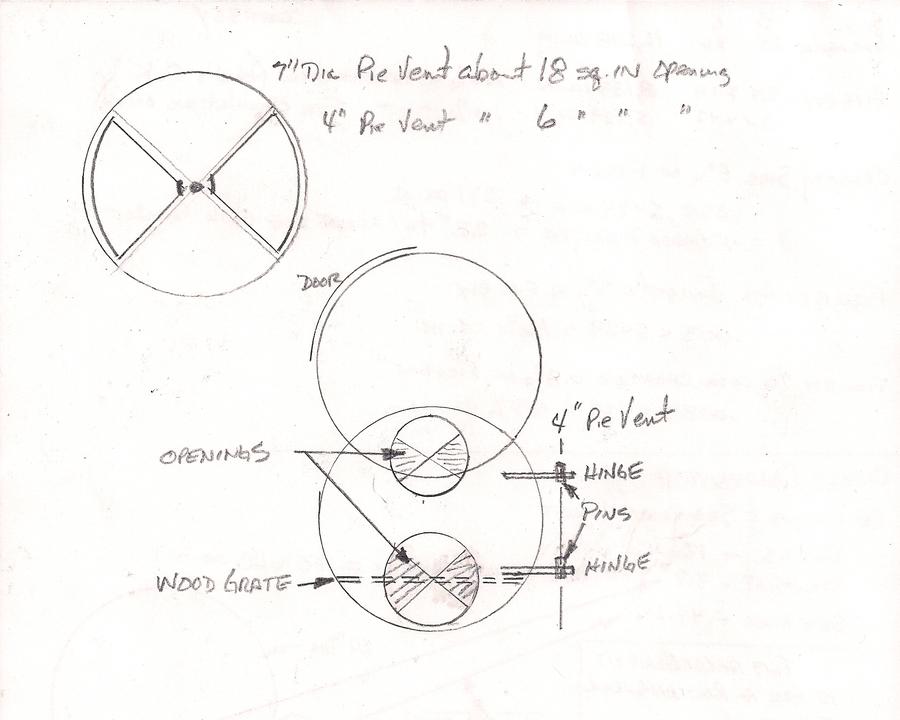 7" Dia Pie Vent about 18 sq. IN Opening
4" Pie Vent " 6 " " "
DOOR
4" Pie Vent
OPENINGS
HINGE
PINS
HINGE
WOOD GRATE